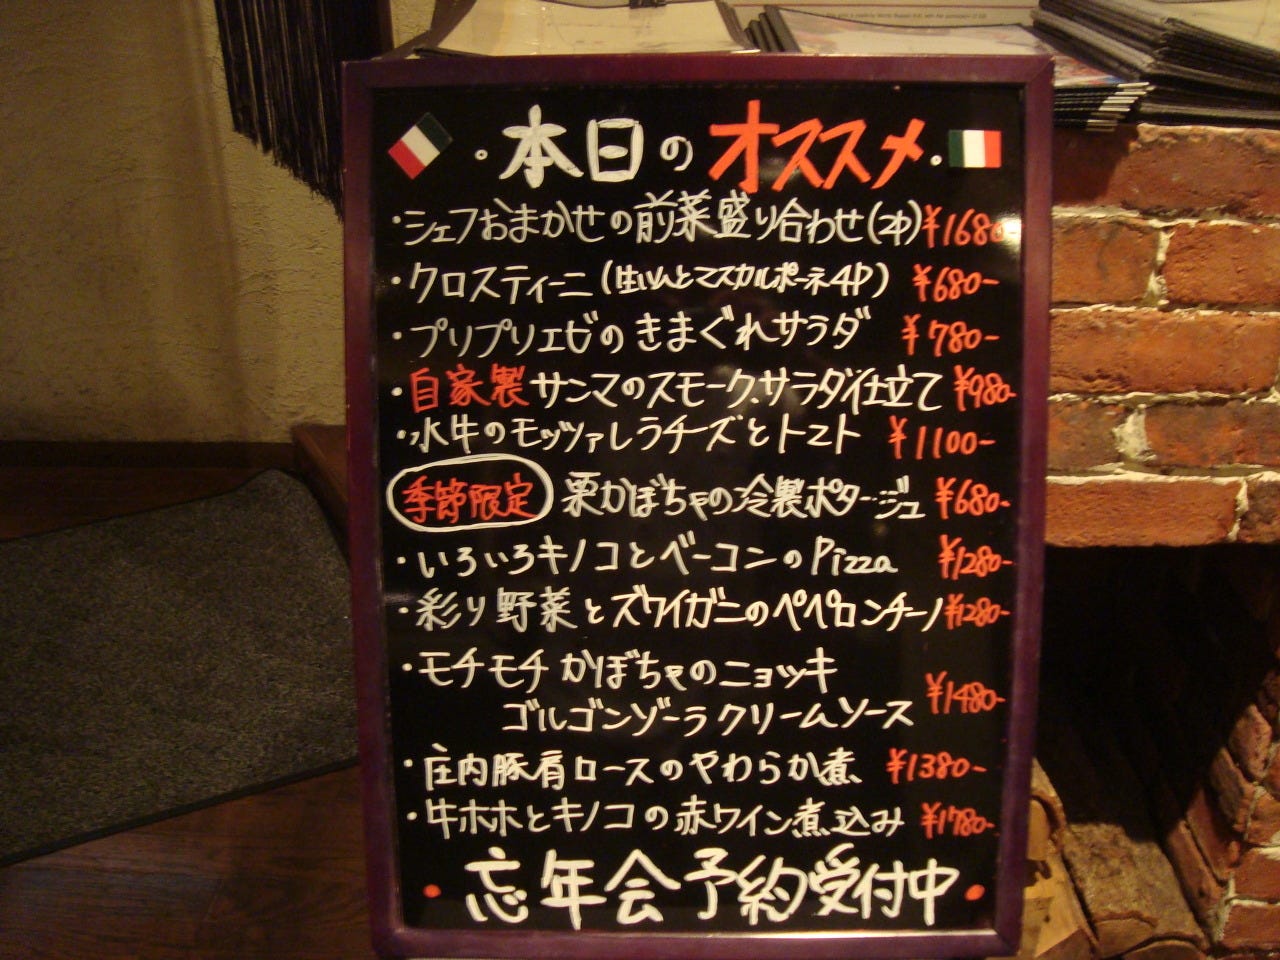 ・本日のオススメ・
・シェフおまかせの前菜盛り合わせ(2P) ¥1680-
・クロスティーニ(生ハムとマスカルポーネ4P) ¥680-
・プリプリエビのきまぐれサラダ ¥780-
・自家製 サンマのスモーク、サラダ仕立て ¥980-
・水牛のモッツァレラチーズとトマト ¥1100-
季節限定 栗かぼちゃの冷製ポタージュ ¥680-
・いろいろキノコとベーコンのPizza ¥1280-
・彩り野菜とズワイガニのペペロンチーノ ¥1280-
・モチモチかぼちゃのニョッキ
ゴルゴンゾーラクリームソース ¥1480-
・庄内豚肩ロースのやわらか煮 ¥1380-
・牛ホホとキノコの赤ワイン煮込み ¥1780-
・忘年会予約受付中・